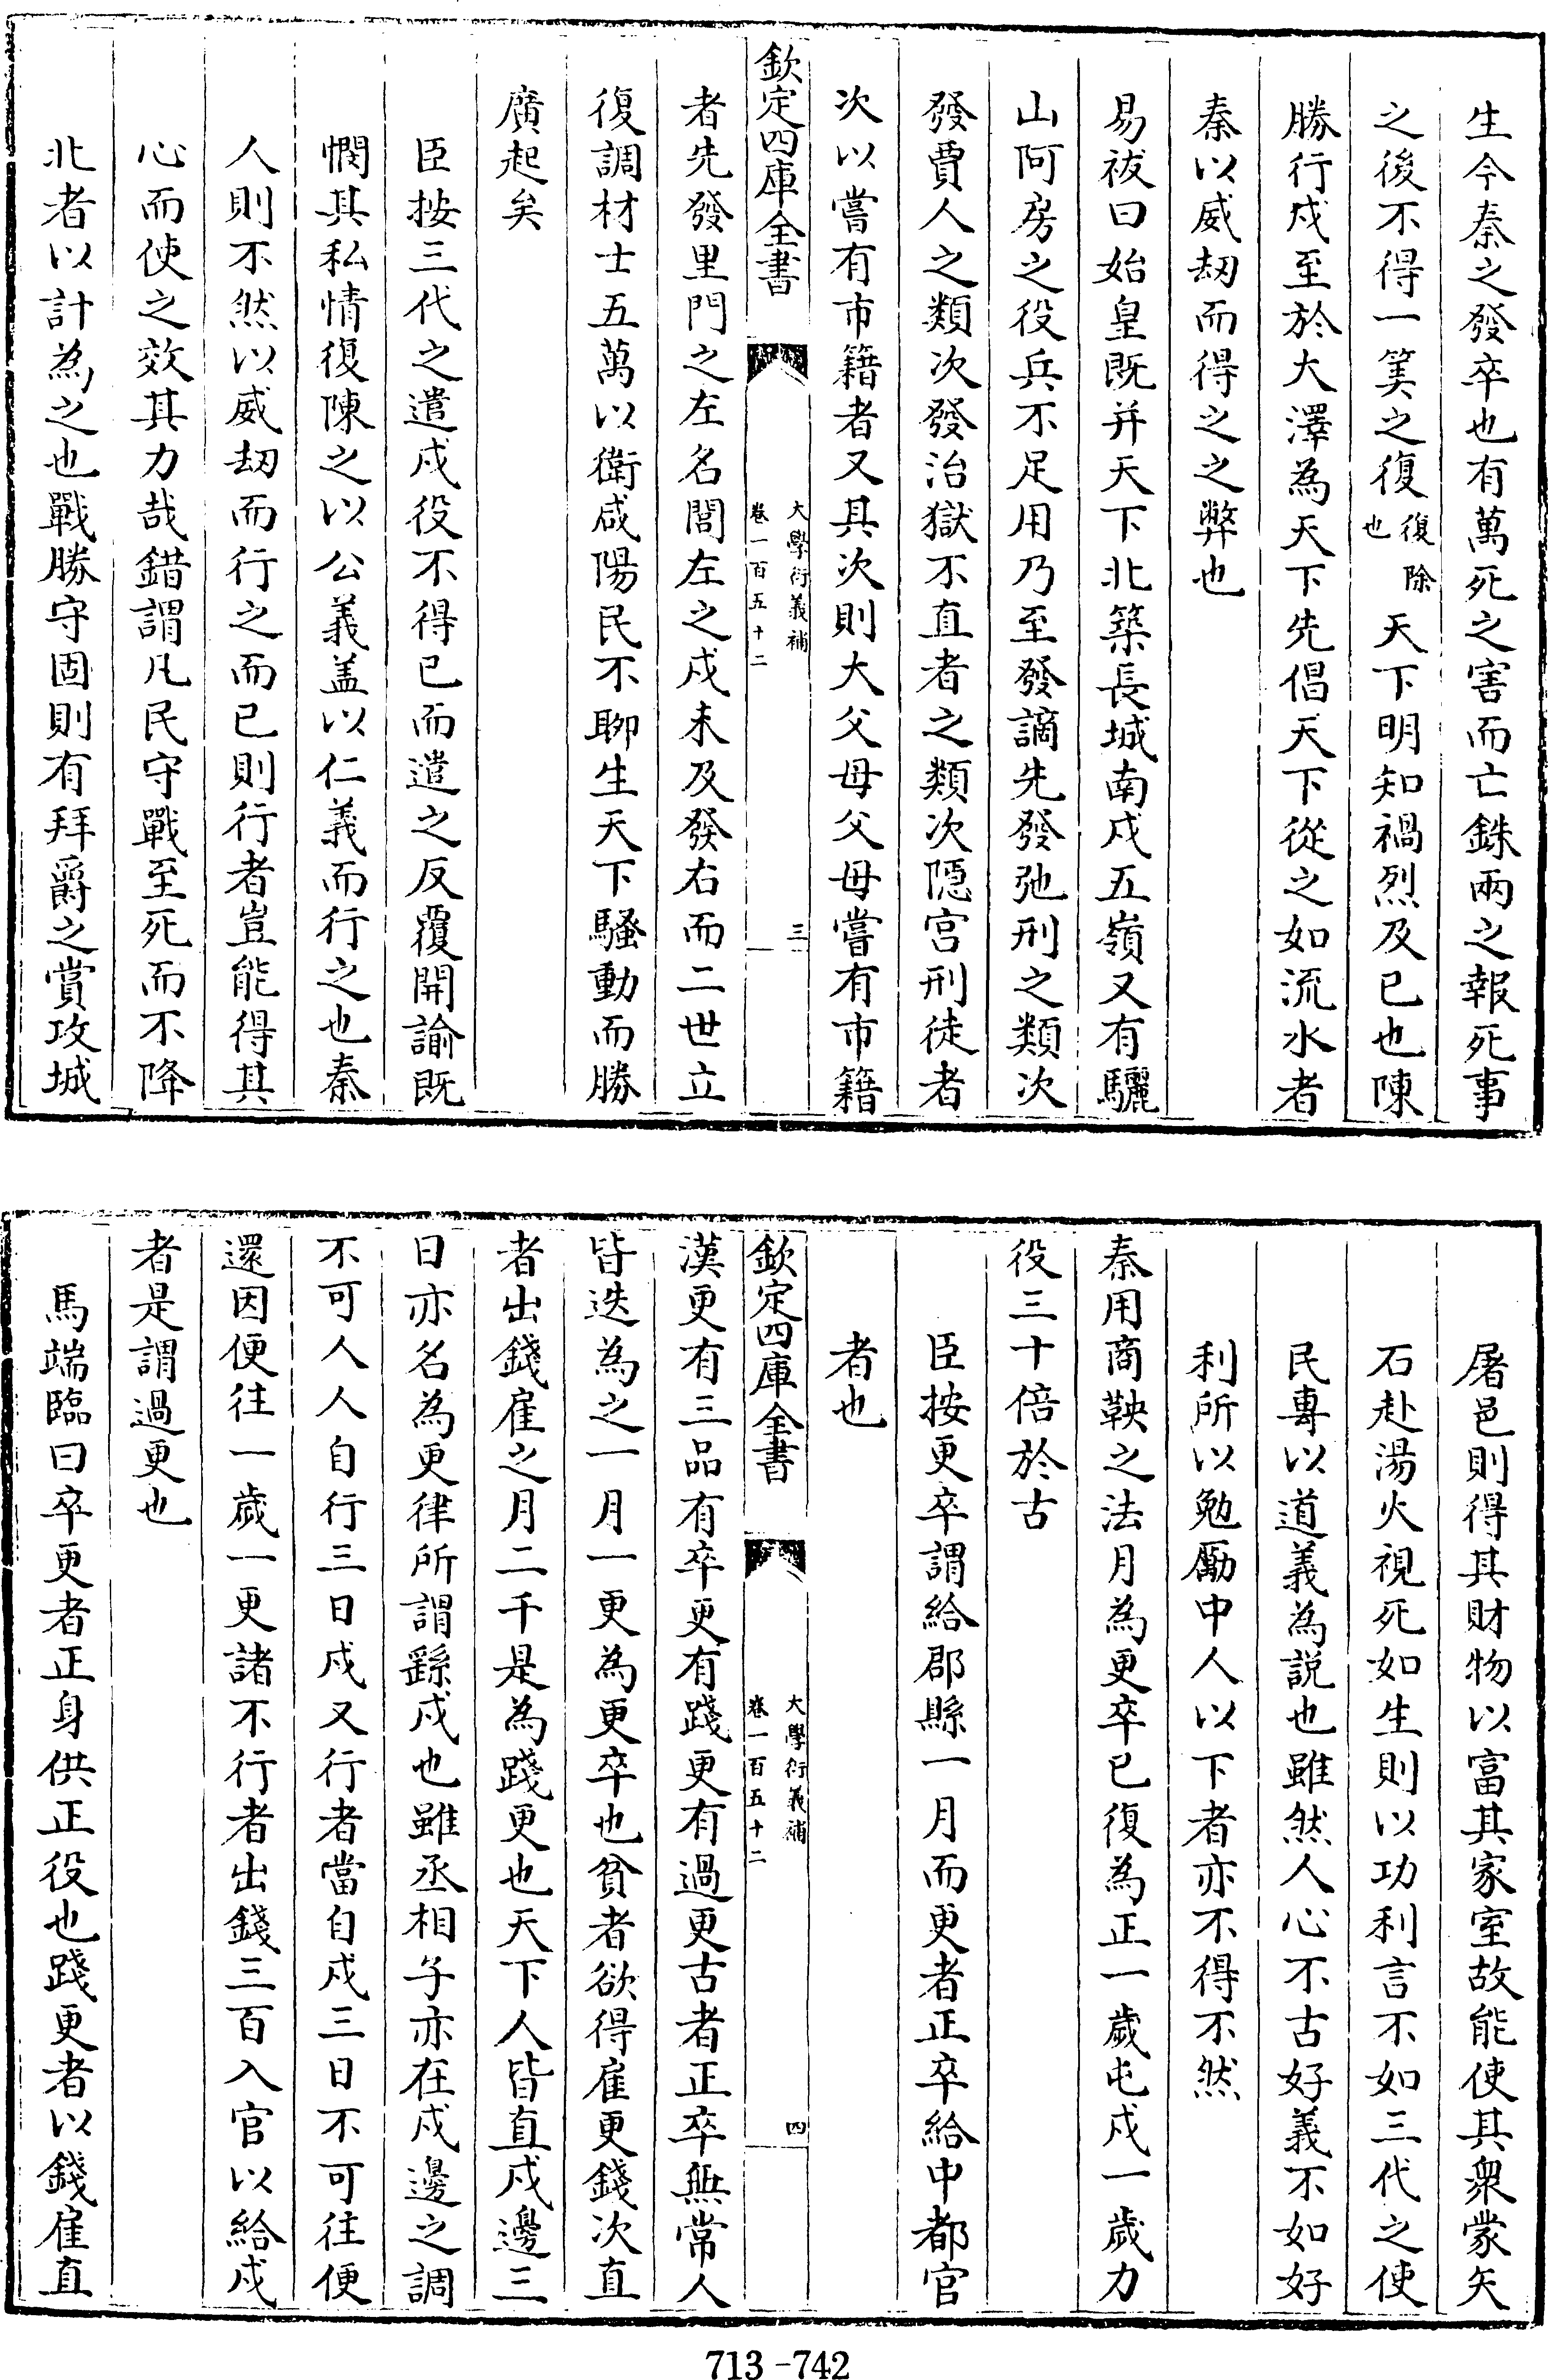 生今秦之發卒也有萬死之害而亡銖兩之報死事
之後不得一筭之復復除也天下明知禍烈及已也陳
勝行戍至於大澤為天下先倡天下從之如流水者
秦以威刼而得之之弊也
易祓曰始皇既并天下北築長城南戍五嶺又有驪
山阿房之役兵不足用乃至發謫先發弛刑之類次
發賈人之類次發治獄不直者之類次隠宫刑徒者
次以嘗有市籍者又其次則大父母父母嘗有市籍
欽定四庫全書
大學衍義補
卷一百五十二
三
者先發里門之左名閭左之戍未及發右而二世立
復調材士五萬以衛咸陽民不聊生天下騷動而勝
廣起矣
臣按三代之遣戍役不得已而遣之反覆開諭既
憫其私情復陳之以公義盖以仁義而行之也秦
人則不然以威刼而行之而已則行者豈能得其
心而使之效其力哉錯謂凡民守戰至死而不降
北者以計為之也戰勝守固則有拜爵之賞攻城
屠邑則得其財物以富其家室故能使其衆蒙矢
石赴湯火視死如生則以功利言不如三代之使
民專以道義為説也雖然人心不古好義不如好
利所以勉勵中人以下者亦不得不然
秦用商鞅之法月為更卒已復為正一歲屯戍一歲力
役三十倍於古
臣按更卒謂給郡縣一月而更者正卒給中都官
者也
欽定四庫全書
大學衍義補
卷一百五十二
四
漢更有三品有卒更有踐更有過更古者正卒無常人
皆迭為之一月一更為更卒也貧者欲得雇更錢次直
者出錢雇之月二千是為踐更也天下人皆直戍邊三
日亦名為更律所謂繇戍也雖丞相子亦在戍邊之調
不可人人自行三日戍又行者當自戍三日不可往便
還因便往一歲一更諸不行者出錢三百入官以給戍
者是謂過更也
馬端臨曰卒更者正身供正役也踐更者以錢雇直
713-742